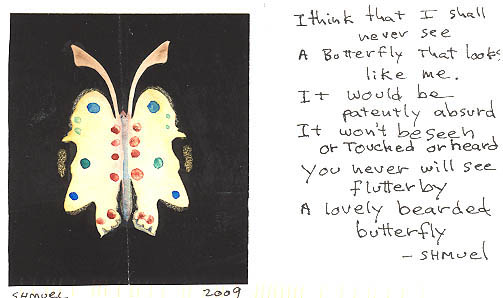 I think that I shall
never see
A Butterfly That looks
like me.
It would be
patently absurd
It won't be seen
or Touched or heard
You never will see
flutter by
A lovely bearded
butterfly
- SHMUEL
SHMUEL 2009